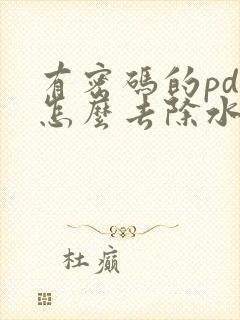 有密碼的pd
怎麼去除水
杜癲